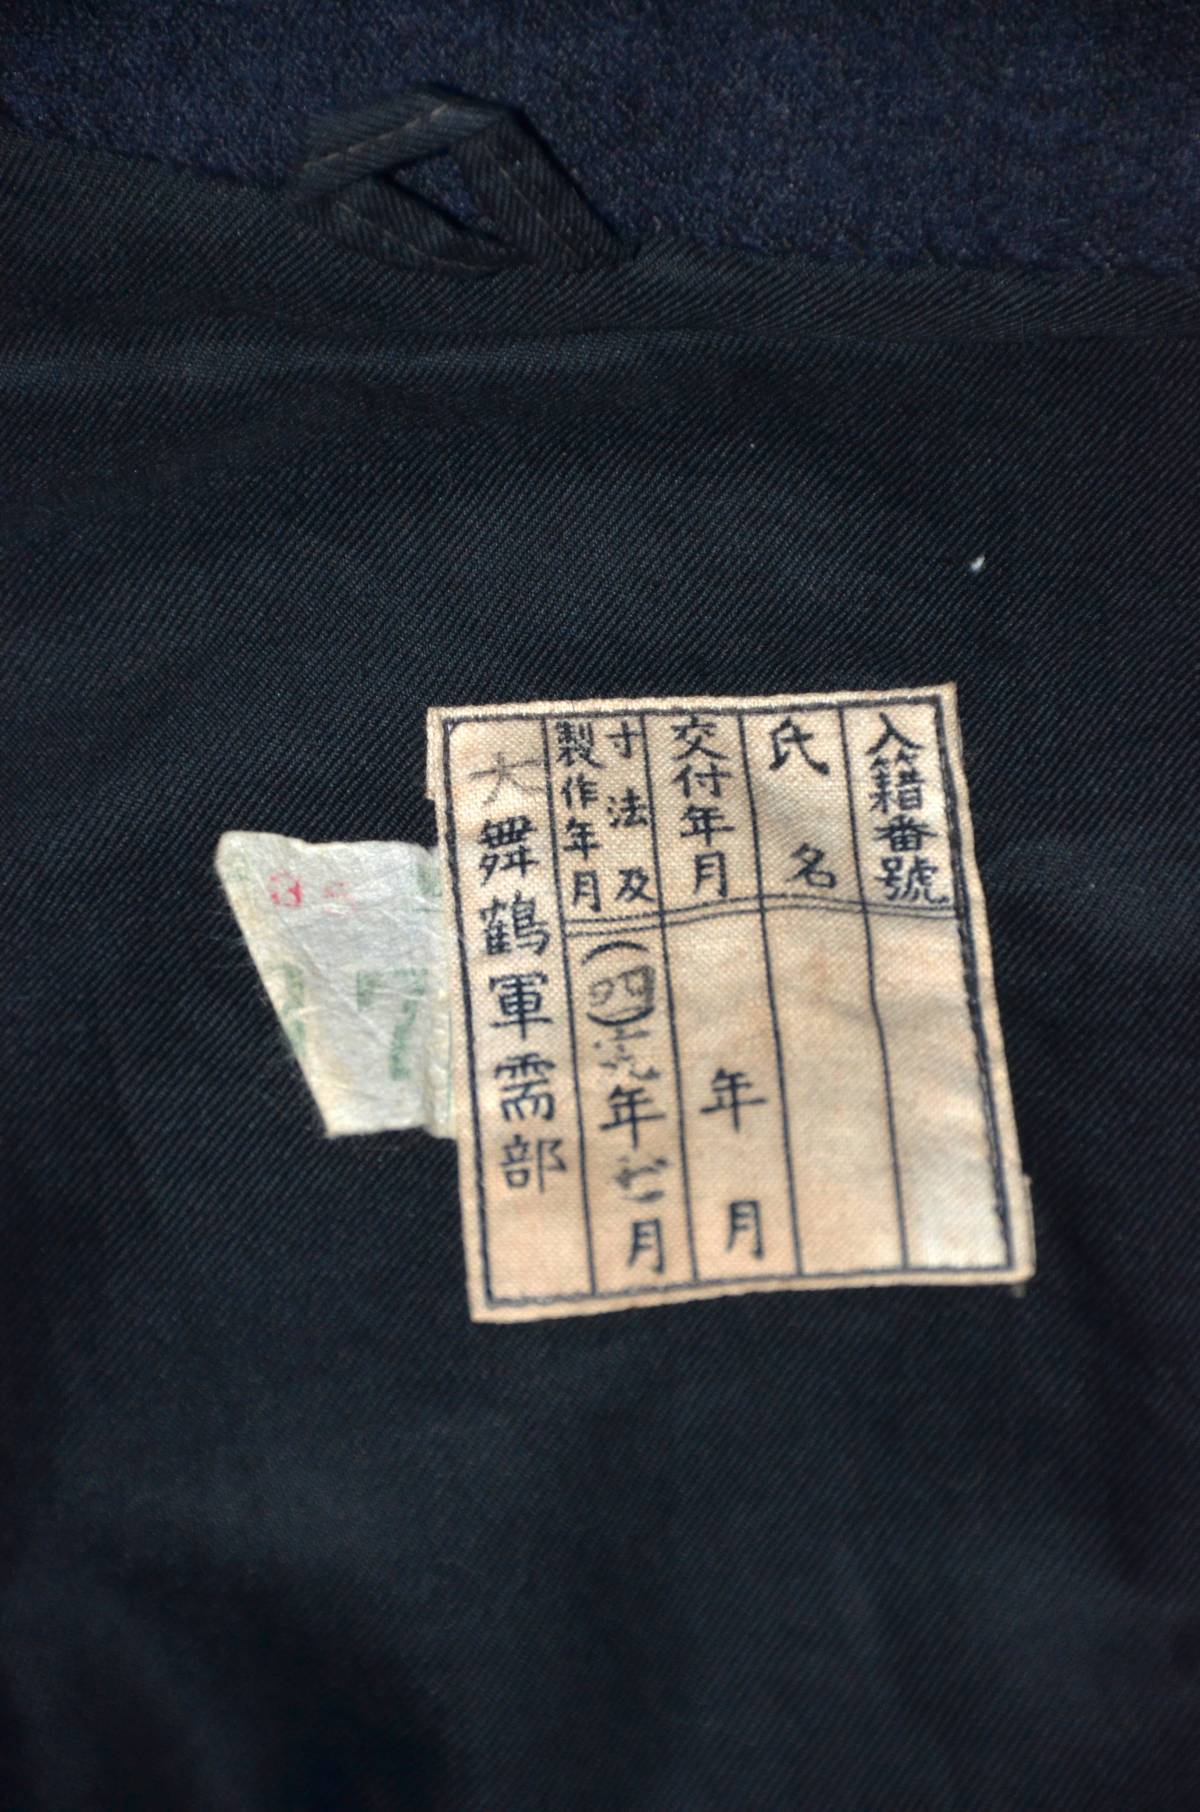 入籍番號
氏名
交付年月
年 月
寸法及
製作年月
(四)
年
月
大舞鶴軍需部
3
7